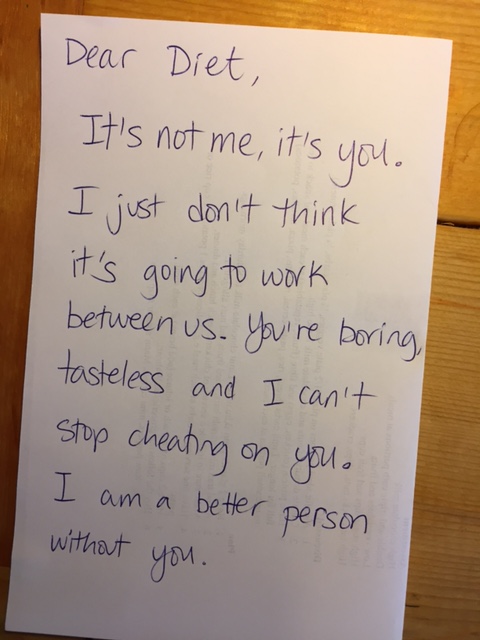 Dear Diet,
It's not me, it's you.
I just don't think
it's going to work
between us. You're boring,
tasteless and I can't
stop cheating on you.
I am a better person
without you.